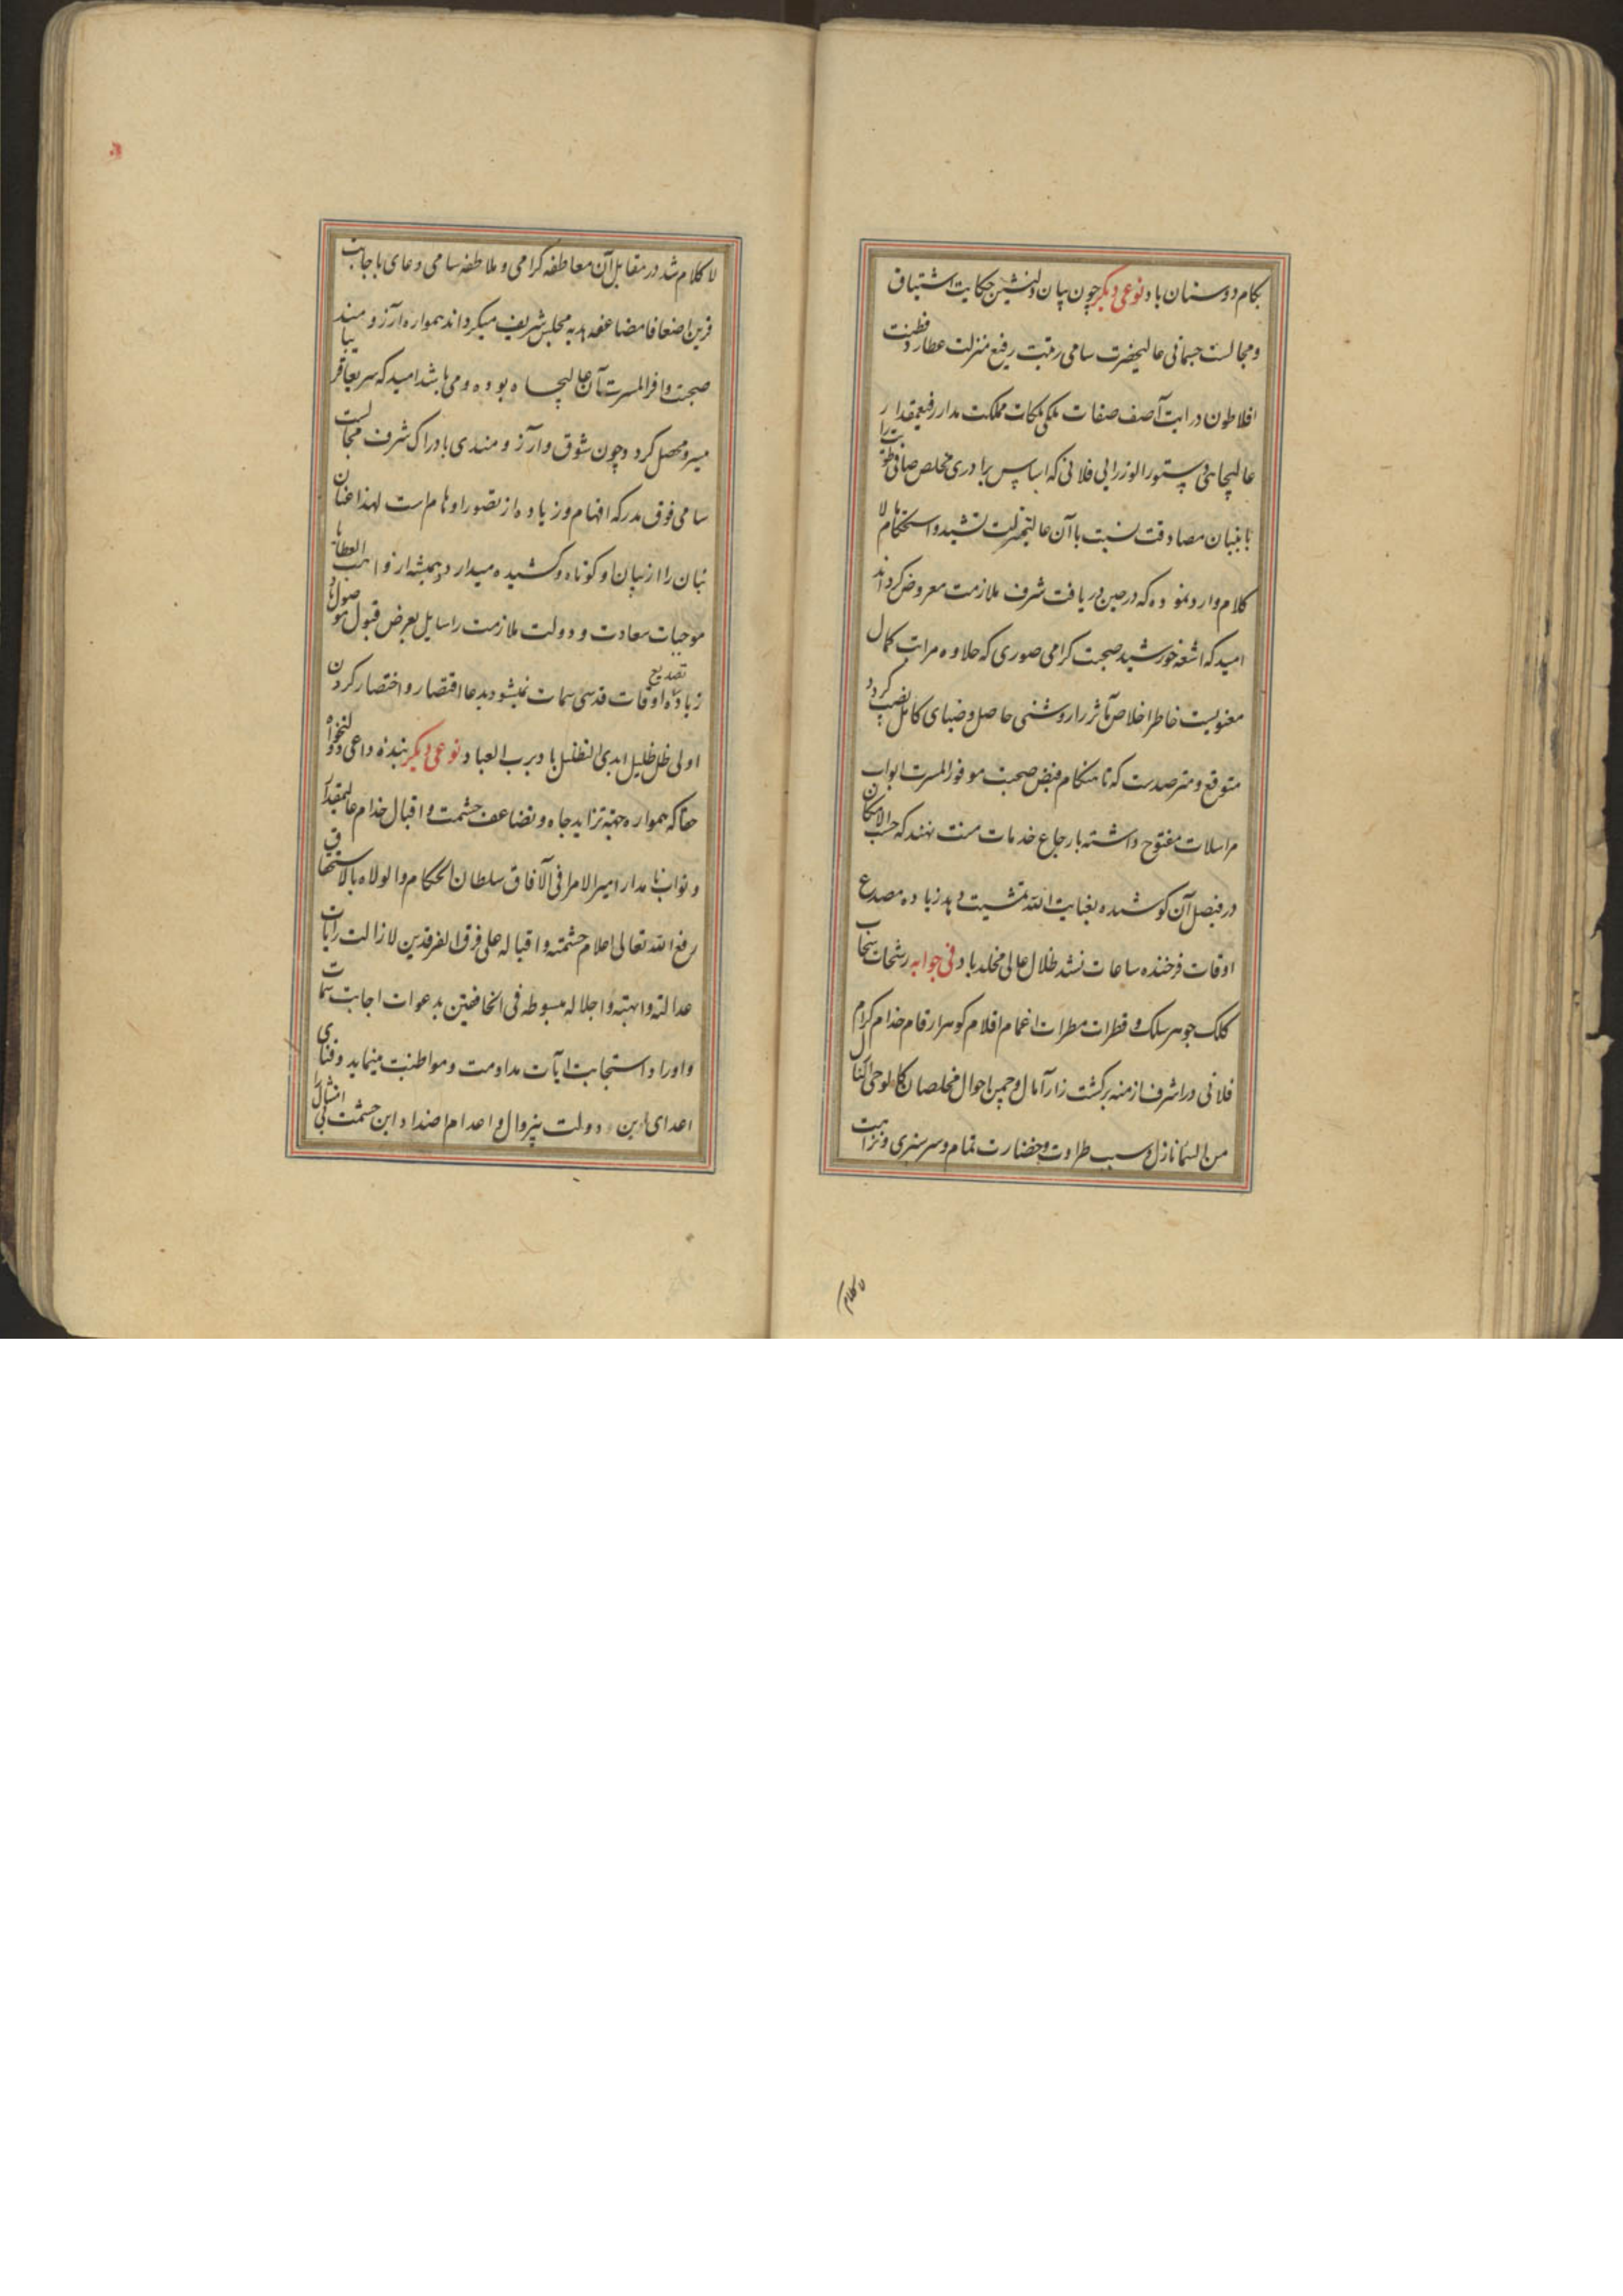 بکام دوستان باد نوعی دیگر چون بیان دلنشین حکایت اشتیاق
ومجالست جسمانی عالیحضرت سامی رتبت رفیع منزلت عطارد فطنت
افلاطون درایت آصف صفات ملکی ملکات مملکت مدار رفیعمقدار
عالیجاهی دستور الوزرایی فلانی که اساس برادری مخلص صافی طویت را
با بنیان مصادقت نسبت باآن عالیحضرت تشید و استحکام لا
کلام وارد نموده که در حین دریافت شرف ملازمت معروض گرداند
امید که اشعه خورشید صحبت گرامی صوری که حلاوه مراتب کمال
معنویست خاطر اخلاص مآثر را روشنی حاصل و ضیای کامل نصیب گردد
متوقع و مترصدست که تا هنکام فیض صحبت موفور المسرت ابواب
مراسلات مفتوح داشته بارجاع خدمات منت نهند که حسب الامکان
در فیصل آن کوشیده بعنایت الله تمشیت دهد زیاده مصدع
اوقات فرخنده ساعات نشد ظلال عالی مخلد باد فی جوابه رشحات سحاب
کلک جوهر سلک و قطرات مطرات اغمام اقلام کوهر ارقام خدام کرام
فلانی در اشرف ازمنه بر کشت زار آمال و چمن احوال مخلصان کالوحی
من السما نازل و سبب طراوت و خضارت تمام و سرسبزی و نزاهت
لا کلام
لا کلام شد در مقابل آن معاطفه کرامی و ملاطفه سامی دعای با جابت
قرین اضعافا مضاعفه هدیه مجلس شریف میکرداند همواره آرزومند
صحبت وافر المسرت آن عالیجاه بوده و می باشد امید که سریعا
میسر و محصل کردد چون شوق و آرزومندی بادراک شرف مجالست
سامی فوق مدرکه افهام و زیاده از تصور اوهام است لهذا عنان
بنان را از بیان او کوتاه و کشیده میدارد و همیشه از واهب العطایا
موجبات سعادت و دولت ملازمت را سایل بعرض قبول موصول باد
زیاده تصدیع اوقات قدسی سمات نمیشود بدعا اقتصار و اختصار کردن
اولی ظل ظلیل ابدی التظلیل باد برب العباد نوعی دیگر بنده داعی دولتخواه
حقا که همواره جهته تزاید جاه و تضاعف حشمت و اقبال خدام عالیمقدار
و نواب نامدار امیر الامرا فی الآفاق سلطان الحکام و الولاه بالاستحقاق
رفع الله تعالی اعلام حشمته و اقباله علی فرق الفرقدین لا زالت رایات
عدالته و ابهته و اجلاله مبسوطه فی الخافقین بدعوات اجابت سمات
و اوراد استجابت آیات مداومت و مواظبت مینماید و فنای
اعدای این دولت بیزوال و اعدام اضداد این حشمت بی امثال را